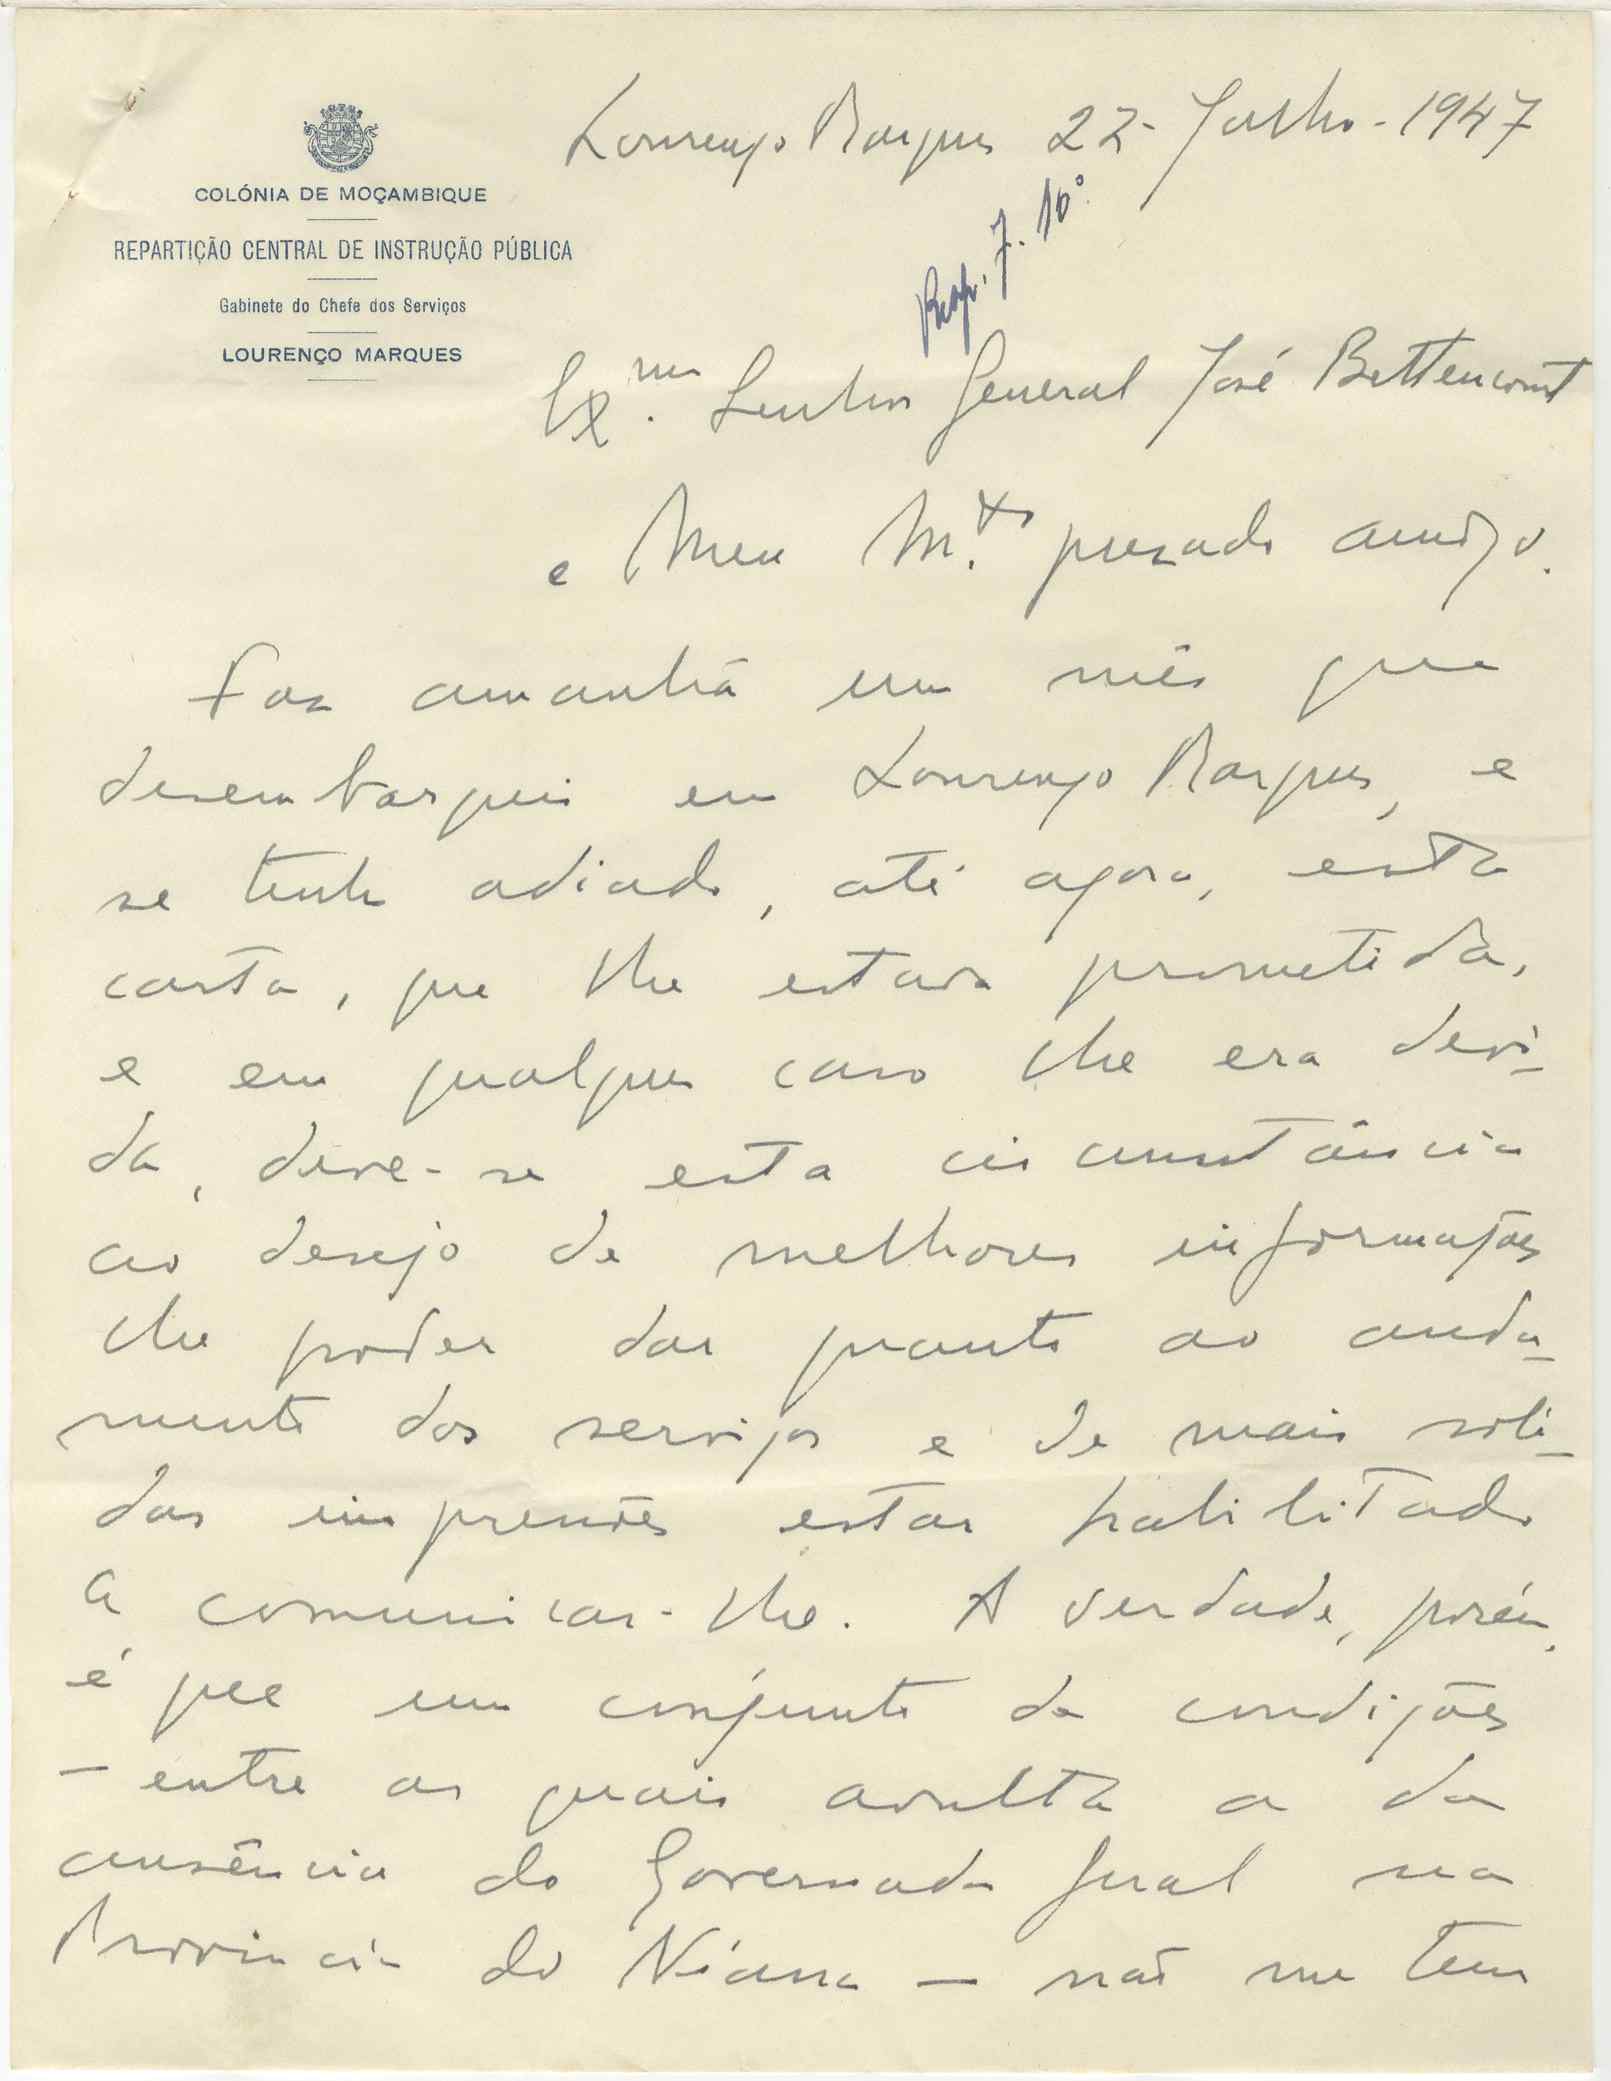 Lourenço Marques 22 - Julho - 1947
COLÓNIA DE MOÇAMBIQUE
REPARTIÇÃO CENTRAL DE INSTRUÇÃO PÚBLICA
Gabinete do Chefe dos Serviços
LOURENÇO MARQUES
Resp. 7. 10º
Ex.mo Senhor General José Bettencourt
e Meu M.to prezado amigo.
Faz amanhã um mês que
desembarquei em Lourenço Marques, e
se tenho adiado, até agora, esta
carta, que lhe estava prometida,
e em qualquer caso lhe era devi-
da, deve-se esta circunstância
ao desejo de melhores informações
lhe poder dar quanto ao anda-
mento dos serviços e de mais sóli-
das impressões estar habilitado
a comunicar-lhe. A verdade, porém,
é que um conjunto de condições
- entre as quais avulta a da
ausência do Governador Geral na
Província do Niassa - não me tem